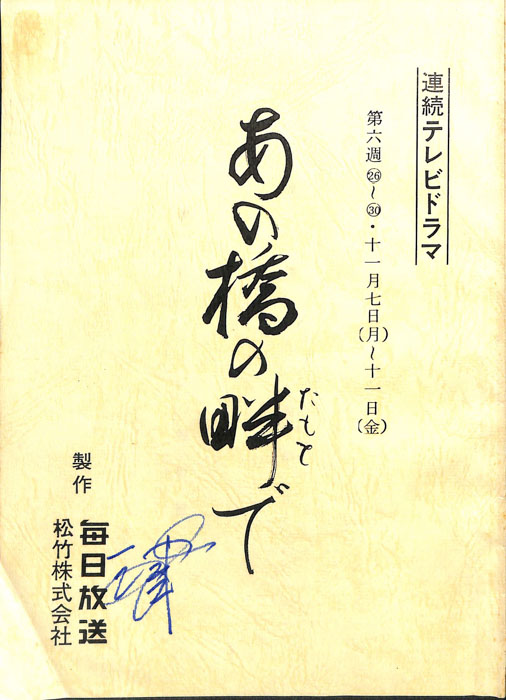 連続テレビドラマ
第六週㉖〜㉚・十一月七日(月)〜十一日(金)
あの橋の畔で
たもと
製作
毎日放送
松竹株式会社